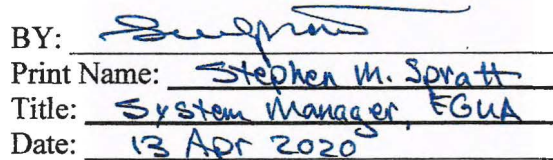 BY:
Print Name: Stephen M. Spratt
Title: System Manager, FGUA
Date: 13 Apr 2020